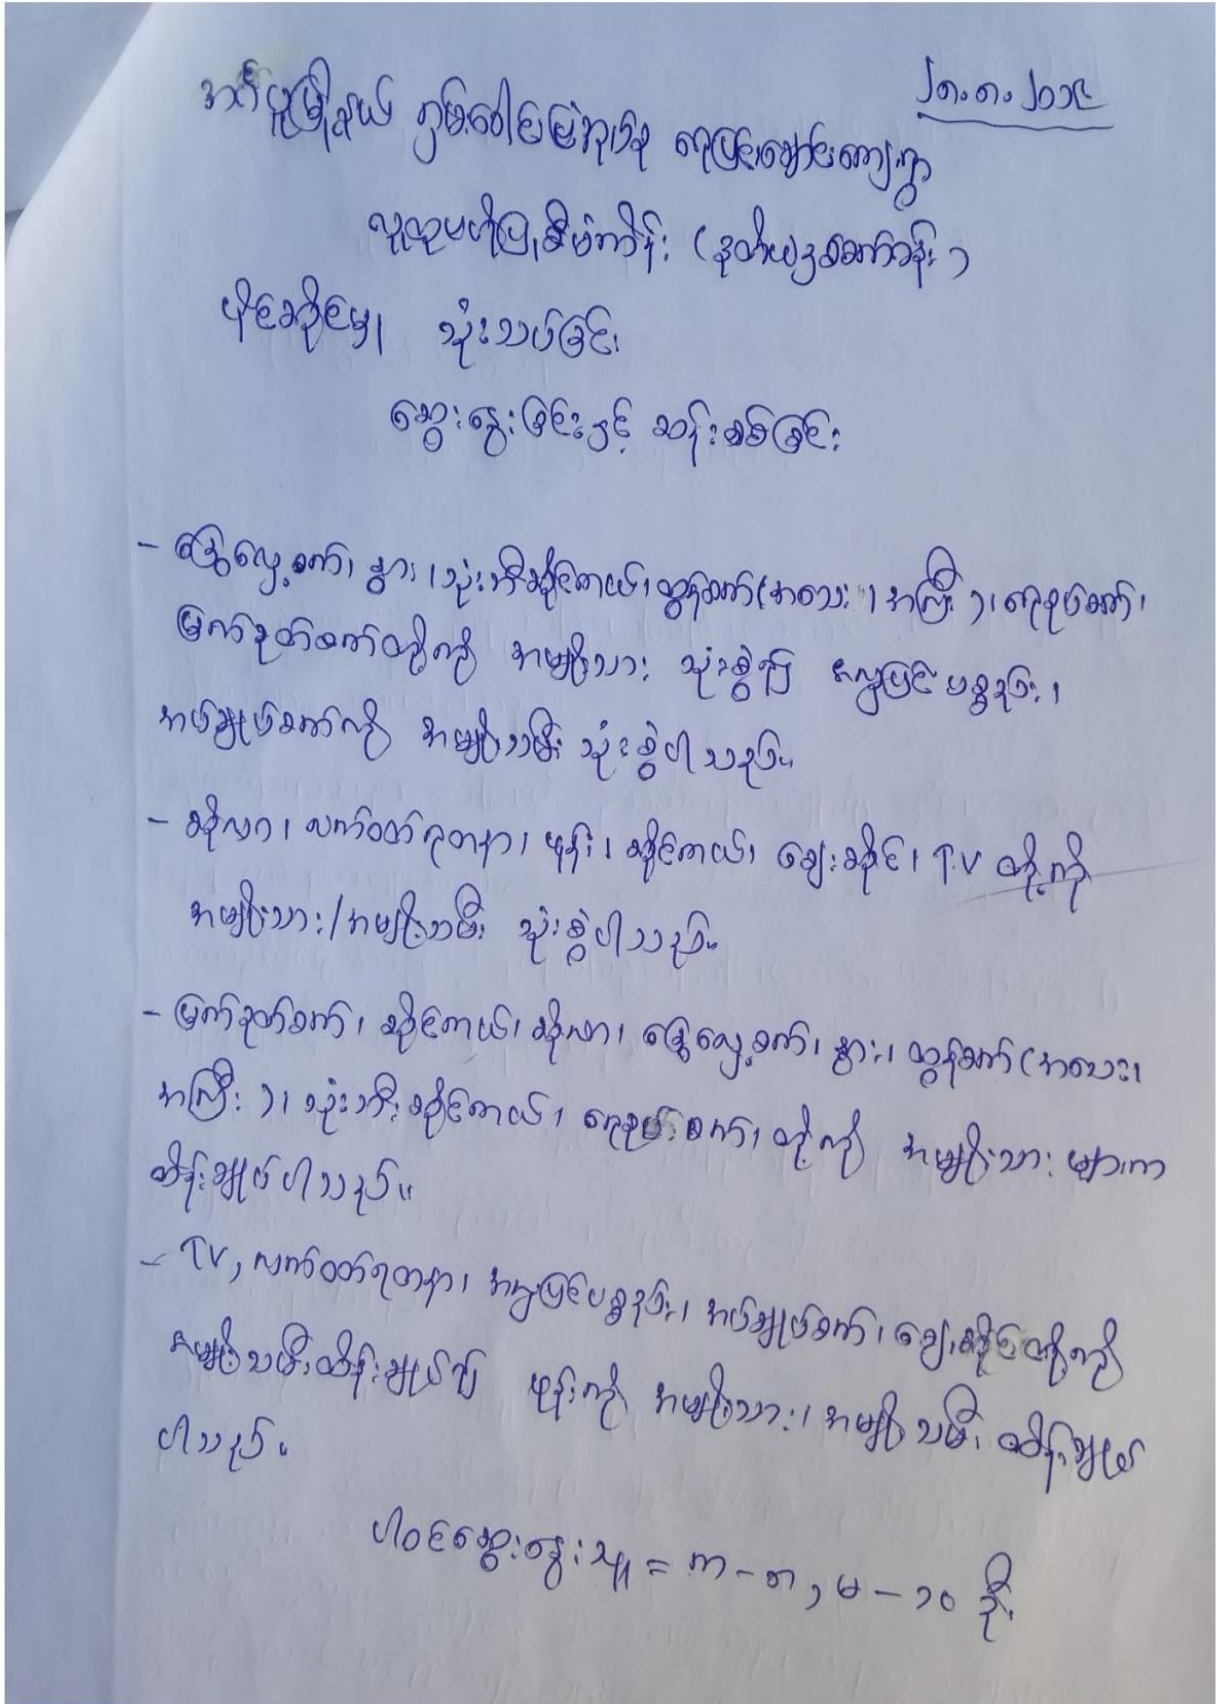 ၂၈.၈.၂၀၁၉
အင်္ဂပူမြို့နယ် ကွမ်းခေါင်မြဲအုပ်စု ရေပြင်ချောင်းကျေးရွာ
လူထုဗဟိုပြုစီမံကိန်း (ဒုတိယနှစ်စက်ဝန်း)
ပိုင်ဆိုင်မှု၊ သုံးသပ်ခြင်း
ဆွေးနွေးခြင်းနှင့် ဆန်းစစ်ခြင်း
- ခြွေလှေ့စက်၊ နွား၊ သုံးဘီးဆိုင်ကယ်၊ ထွန်စက်(အသေး၊ အကြီး)၊ ရေစုပ်စက်၊
မြက်ခုတ်စက်တို့ကို အမျိုးသား သုံးစွဲ၍ အလှပြင်ပစ္စည်း၊
အပ်ချုပ်စက်ကို အမျိုးသမီး သုံးစွဲပါသည်။
- ဆိုလာ၊ လက်ဝတ်ရတနာ၊ ဖုန်း၊ ဆိုင်ကယ်၊ ဈေးဆိုင်၊ T.V တို့ကို
အမျိုးသား/အမျိုးသမီး သုံးစွဲပါသည်။
- မြက်ခုတ်စက်၊ ဆိုင်ကယ်၊ ဆိုလာ၊ ခြွေလှေ့စက်၊ နွား၊ ထွန်စက်(အသေး၊
အကြီး)၊ သုံးဘီးဆိုင်ကယ်၊ ရေစုပ်စက်၊ တို့ကို အမျိုးသားများက
ထိန်းချုပ်ပါသည်။
- TV, လက်ဝတ်ရတနာ၊ အလှပြင်ပစ္စည်း၊ အပ်ချုပ်စက်၊ ဈေးဆိုင်တို့ကို
အမျိုးသမီးထိန်းချုပ်၍ ဖုန်းကို အမျိုးသား၊ အမျိုးသမီး ထိန်းချုပ်
ပါသည်။
ပါဝင်ဆွေးနွေးသူ = ကျ - ၈, မ - ၁၀ ဦး